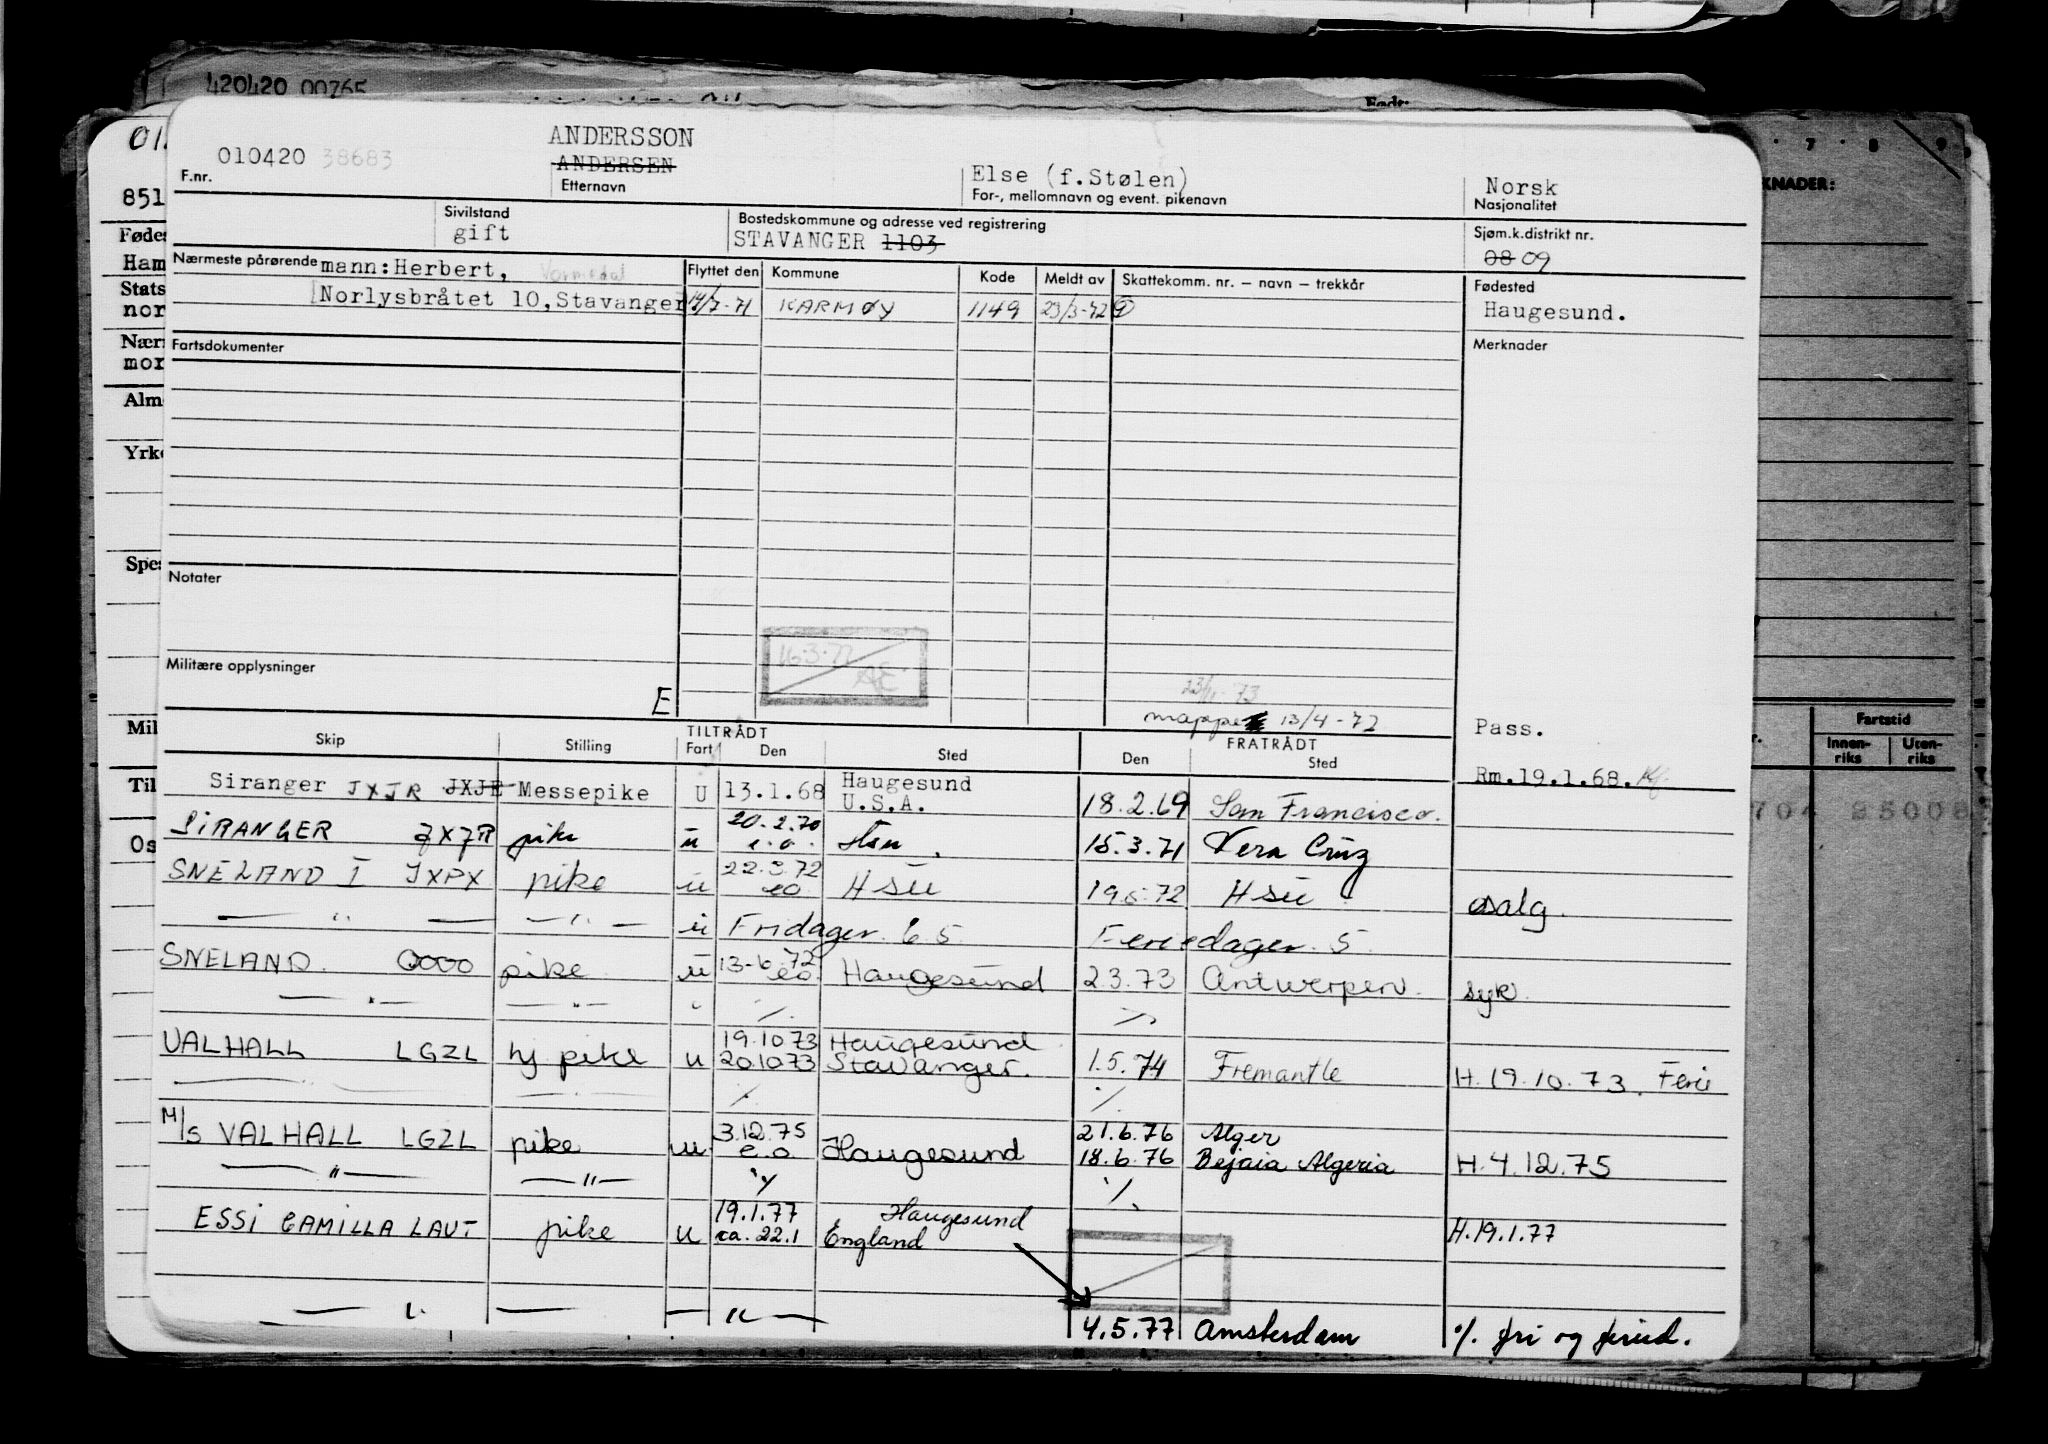 420420 00765
Født:
010420 38683
F.nr.
ANDERSSON
ANDERSEN
Etternavn
Else (f.Stølen)
For-, mellomnavn og event. pikenavn
Norsk
Nasjonalitet
7 8 9
KNADER:
851
Sivilstand
gift
Bostedskommune og adresse ved registrering
STAVANGER 1103
Sjøm.k.distrikt nr.
08 09
Fødes
Ham
Stats
nor
Nær
mor
Alm
Yrke
Spes
Mil
Til
Os
Nærmeste pårørende mann: Herbert, Vormedal
Norlysbråtet 10, Stavanger
Flyttet den Kommune Kode Meldt av Skattekomm. nr. — navn — trekkår
14/7-71 KARMØY 1149 23/3-72 9
Fødested
Haugesund.
Fartsdokumenter
Merknader
Notater
16.3.77
AE
Militære opplysninger
E
mappe 13/4-72
Pass.
Rm.19.1.68.
Fartstid
Innen-
riks
Uten-
riks
Skip Stilling TILTRÅDT Fart Den Sted FRATRÅDT Den Sted
Siranger JXJR JXJE Messepike U 13.1.68 Haugesund U.S.A. 18.2.69 San Francisco.
SIRANGER JXJR pike u 20.2.70 e.o. Hsu. 15.3.71 Vera Cruz
SNELAND I JXPX pike u 22.3.72 eo. Hsu 19.5.72 Hsu asalg.
— " — — " — u Fridager. 65 Feriedager. 5
SNELAND. 0000 pike u 13-6.72 eo. Haugesund 2.3.73 Antwerpen. syk.
— " — — " — " ./. ./.
VALHALL LGZL hj pike u 19.10.73 Haugesund
20.10.73 Stavanger. 1.5.74 Fremantle H.19.10.73. Ferie
— " — ./. ./.
M/S VALHALL LGZL pike u 3.12.75 e.o Haugesund 21.6.76 Alger
18.6.76 Bejaia Algeria H.4.12.75
— " — — " — ./. ./.
ESSI CAMILLA LAUT pike u 19.1.77 Haugesund
ca. 22.1 England H.19.1.77
— " — — — — " — 4.5.77 Amsterdam ./. fri og feried.